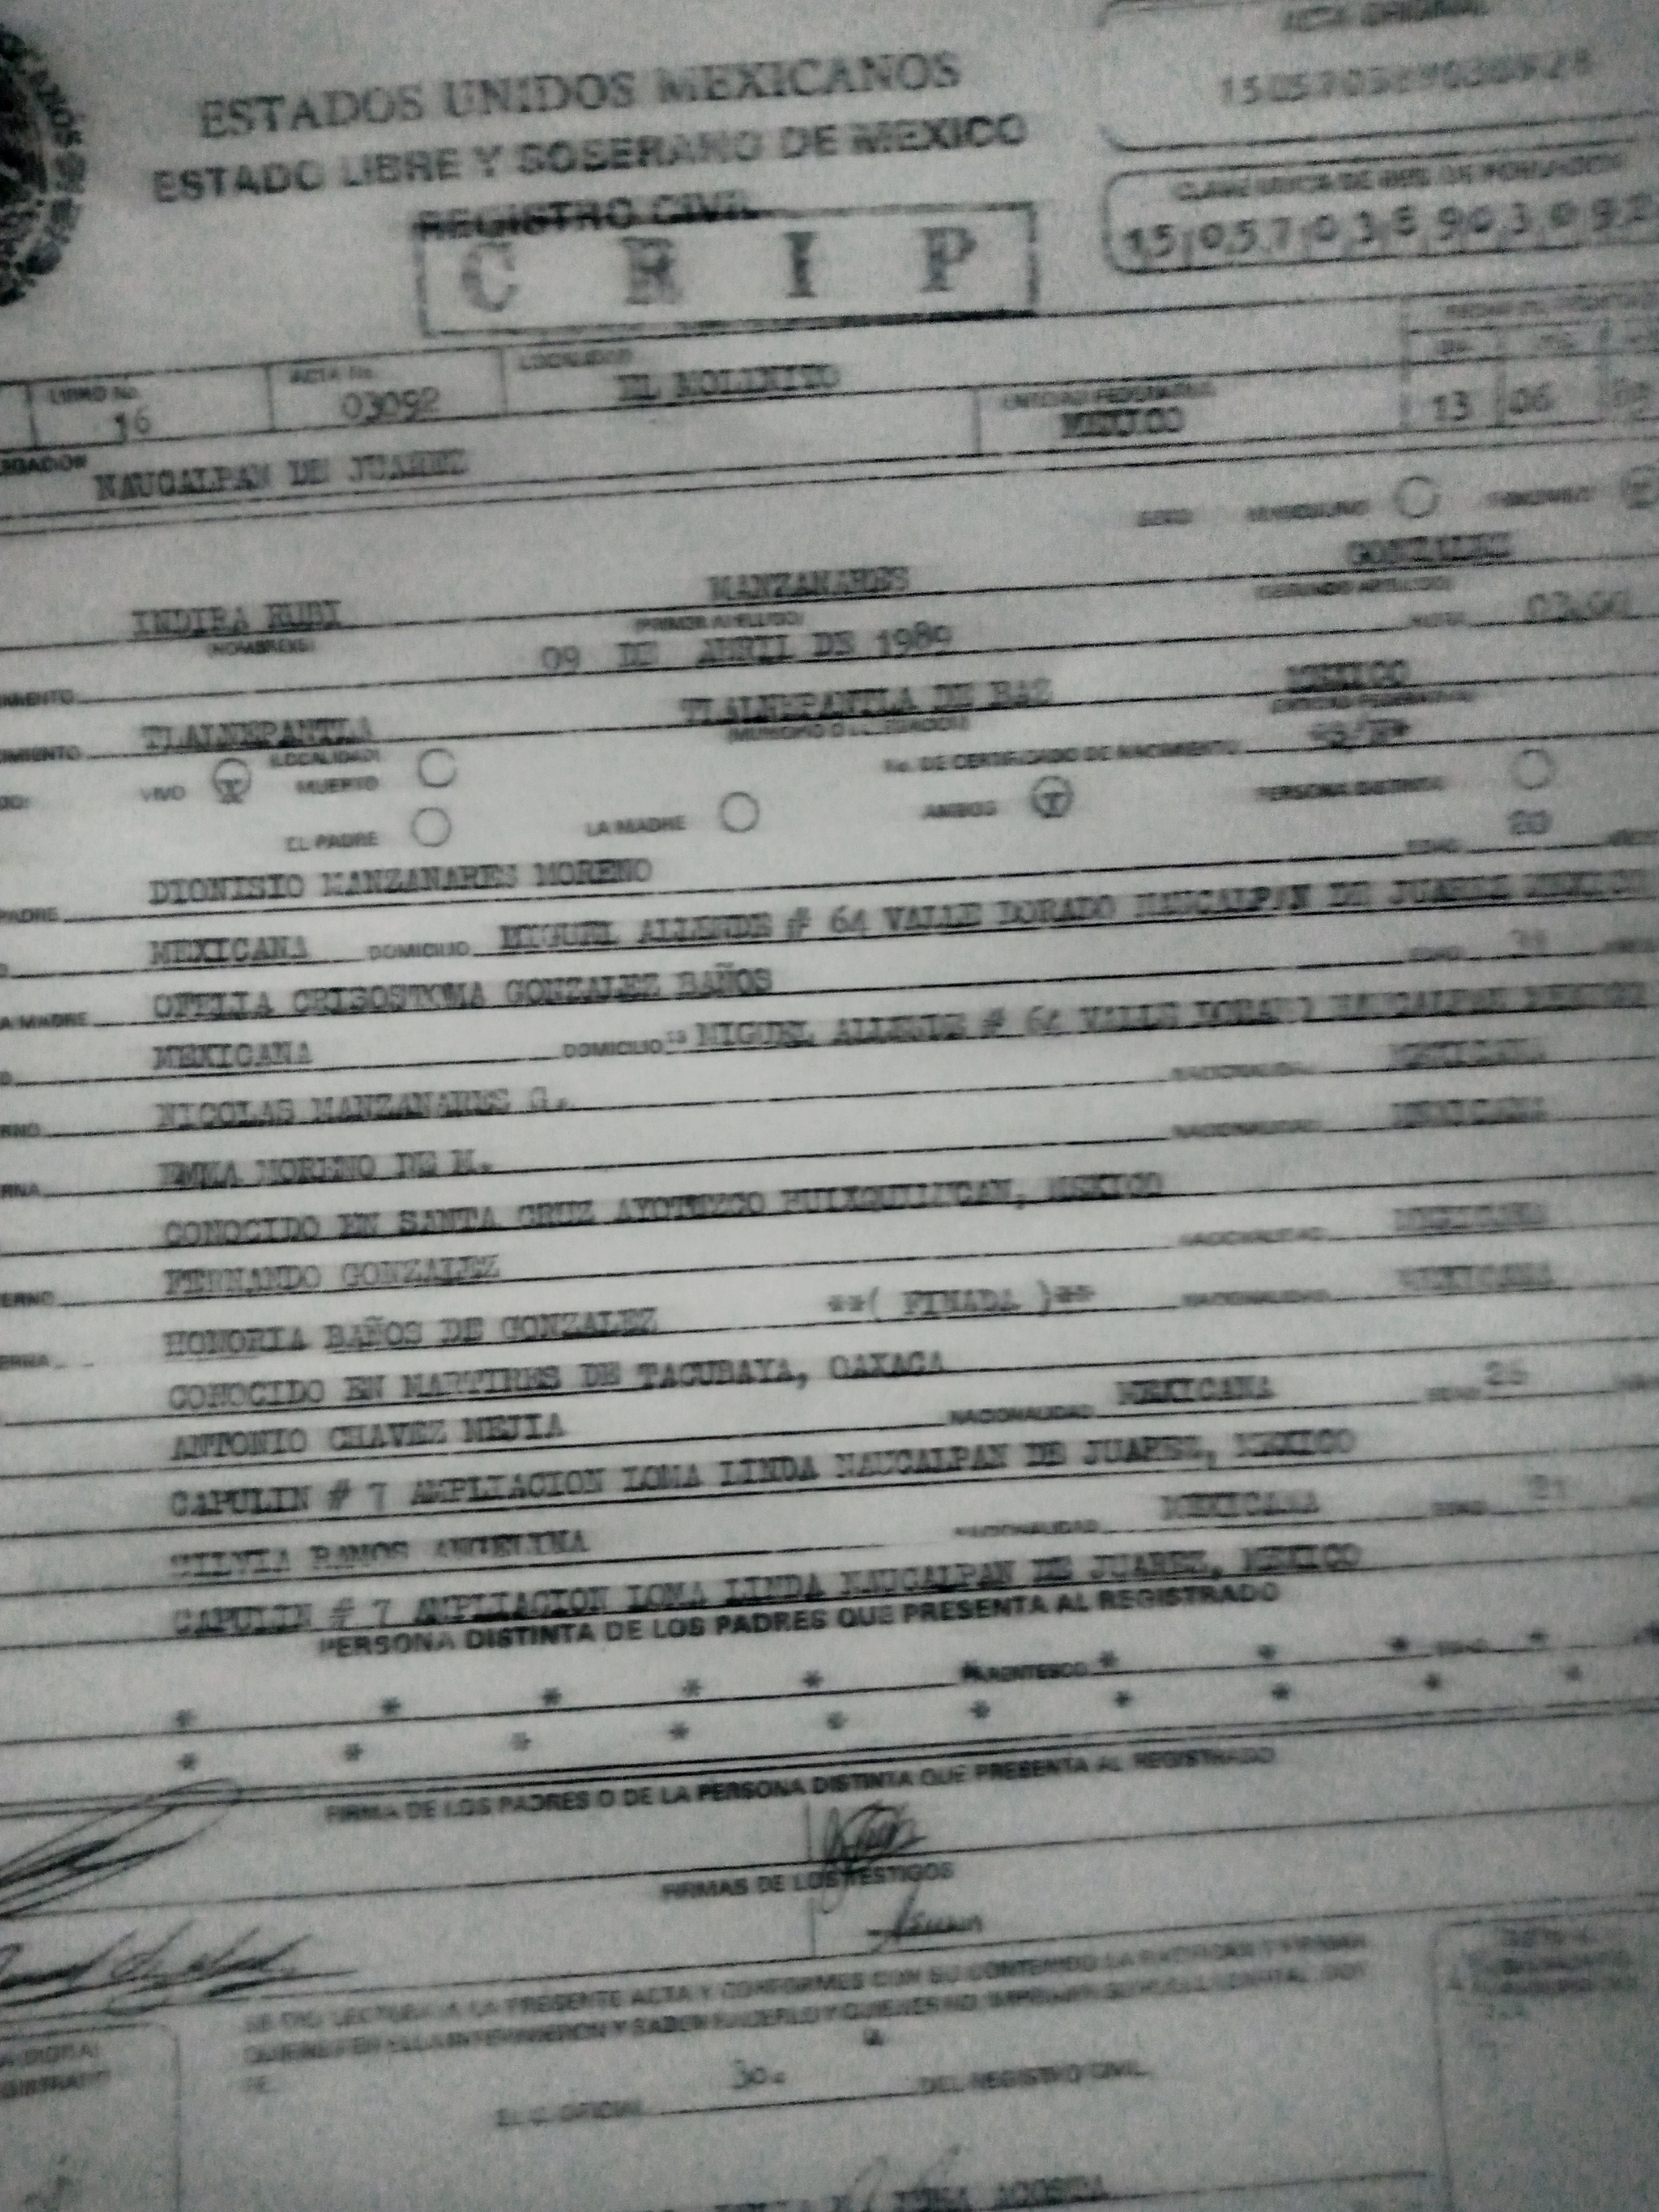 ACTA ORIGINAL
ESTADOS UNIDOS MEXICANOS
ESTADO LIBRE Y SOBERANO DE MEXICO
REGISTRO CIVIL
C R I P
CLAVE UNICA DE REG. DE POBLACION
LIBRO No. ACTA No. LOCALIDAD
16 03092 EL MOLINITO
ENTIDAD FEDERATIVA
MEXICO 13 06
NAUCALPAN DE JUAREZ
SEXO MASCULINO FEMENINO X
INDIRA RUBI MANZANARES GONZALEZ
(NOMBRE(S)) (PRIMER APELLIDO) (SEGUNDO APELLIDO)
09 DE ABRIL DE 1989 HORA
TLALNEPANTLA TLALNEPANTLA DE BAZ MEXICO
(LOCALIDAD) (MUNICIPIO O DELEGACION) (ENTIDAD FEDERATIVA)
VIVO X MUERTO No. DE CERTIFICADO DE NACIMIENTO
EL PADRE LA MADRE AMBOS X PERSONA DISTINTA
PADRE DIONISIO MANZANARES MORENO EDAD 20
MEXICANA DOMICILIO MIGUEL ALLENDE # 64 VALLE DORADO NAUCALPAN DE JUAREZ MEXICO
MADRE OFELIA CRISOSTOMA GONZALEZ BAÑOS EDAD
MEXICANA DOMICILIO MIGUEL ALLENDE # 64 VALLE DORADO NAUCALPAN MEXICO
NICOLAS MANZANARES G. NACIONALIDAD MEXICANA
EMMA MORENO DE M. NACIONALIDAD MEXICANA
CONOCIDO EN SANTA CRUZ AYOTUZCO HUIXQUILUCAN, MEXICO
FERNANDO GONZALEZ NACIONALIDAD MEXICANA
HONORIA BAÑOS DE GONZALEZ **( FINADA )** NACIONALIDAD MEXICANA
CONOCIDO EN MARTIRES DE TACUBAYA, OAXACA
ANTONIO CHAVEZ MEJIA NACIONALIDAD MEXICANA EDAD
CAPULIN # 7 AMPLIACION LOMA LINDA NAUCALPAN DE JUAREZ, MEXICO
SILVIA RAMOS ANGELINA NACIONALIDAD MEXICANA EDAD
CAPULIN # 7 AMPLIACION LOMA LINDA NAUCALPAN DE JUAREZ, MEXICO
PERSONA DISTINTA DE LOS PADRES QUE PRESENTA AL REGISTRADO
* * * * * PARENTESCO * * * EDAD *
* * * * * * * * * *
FIRMA DE LOS PADRES O DE LA PERSONA DISTINTA QUE PRESENTA AL REGISTRADO
FIRMAS DE LOS TESTIGOS
SE DIO LECTURA A LA PRESENTE ACTA Y CONFORMES CON SU CONTENIDO LA RATIFICAN Y FIRMAN
QUIENES EN ELLA INTERVINIERON Y SABEN HACERLO Y QUIENES NO, IMPRIMEN SU HUELLA DIGITAL. DOY
FE.
EL C. OFICIAL 30. DEL REGISTRO CIVIL